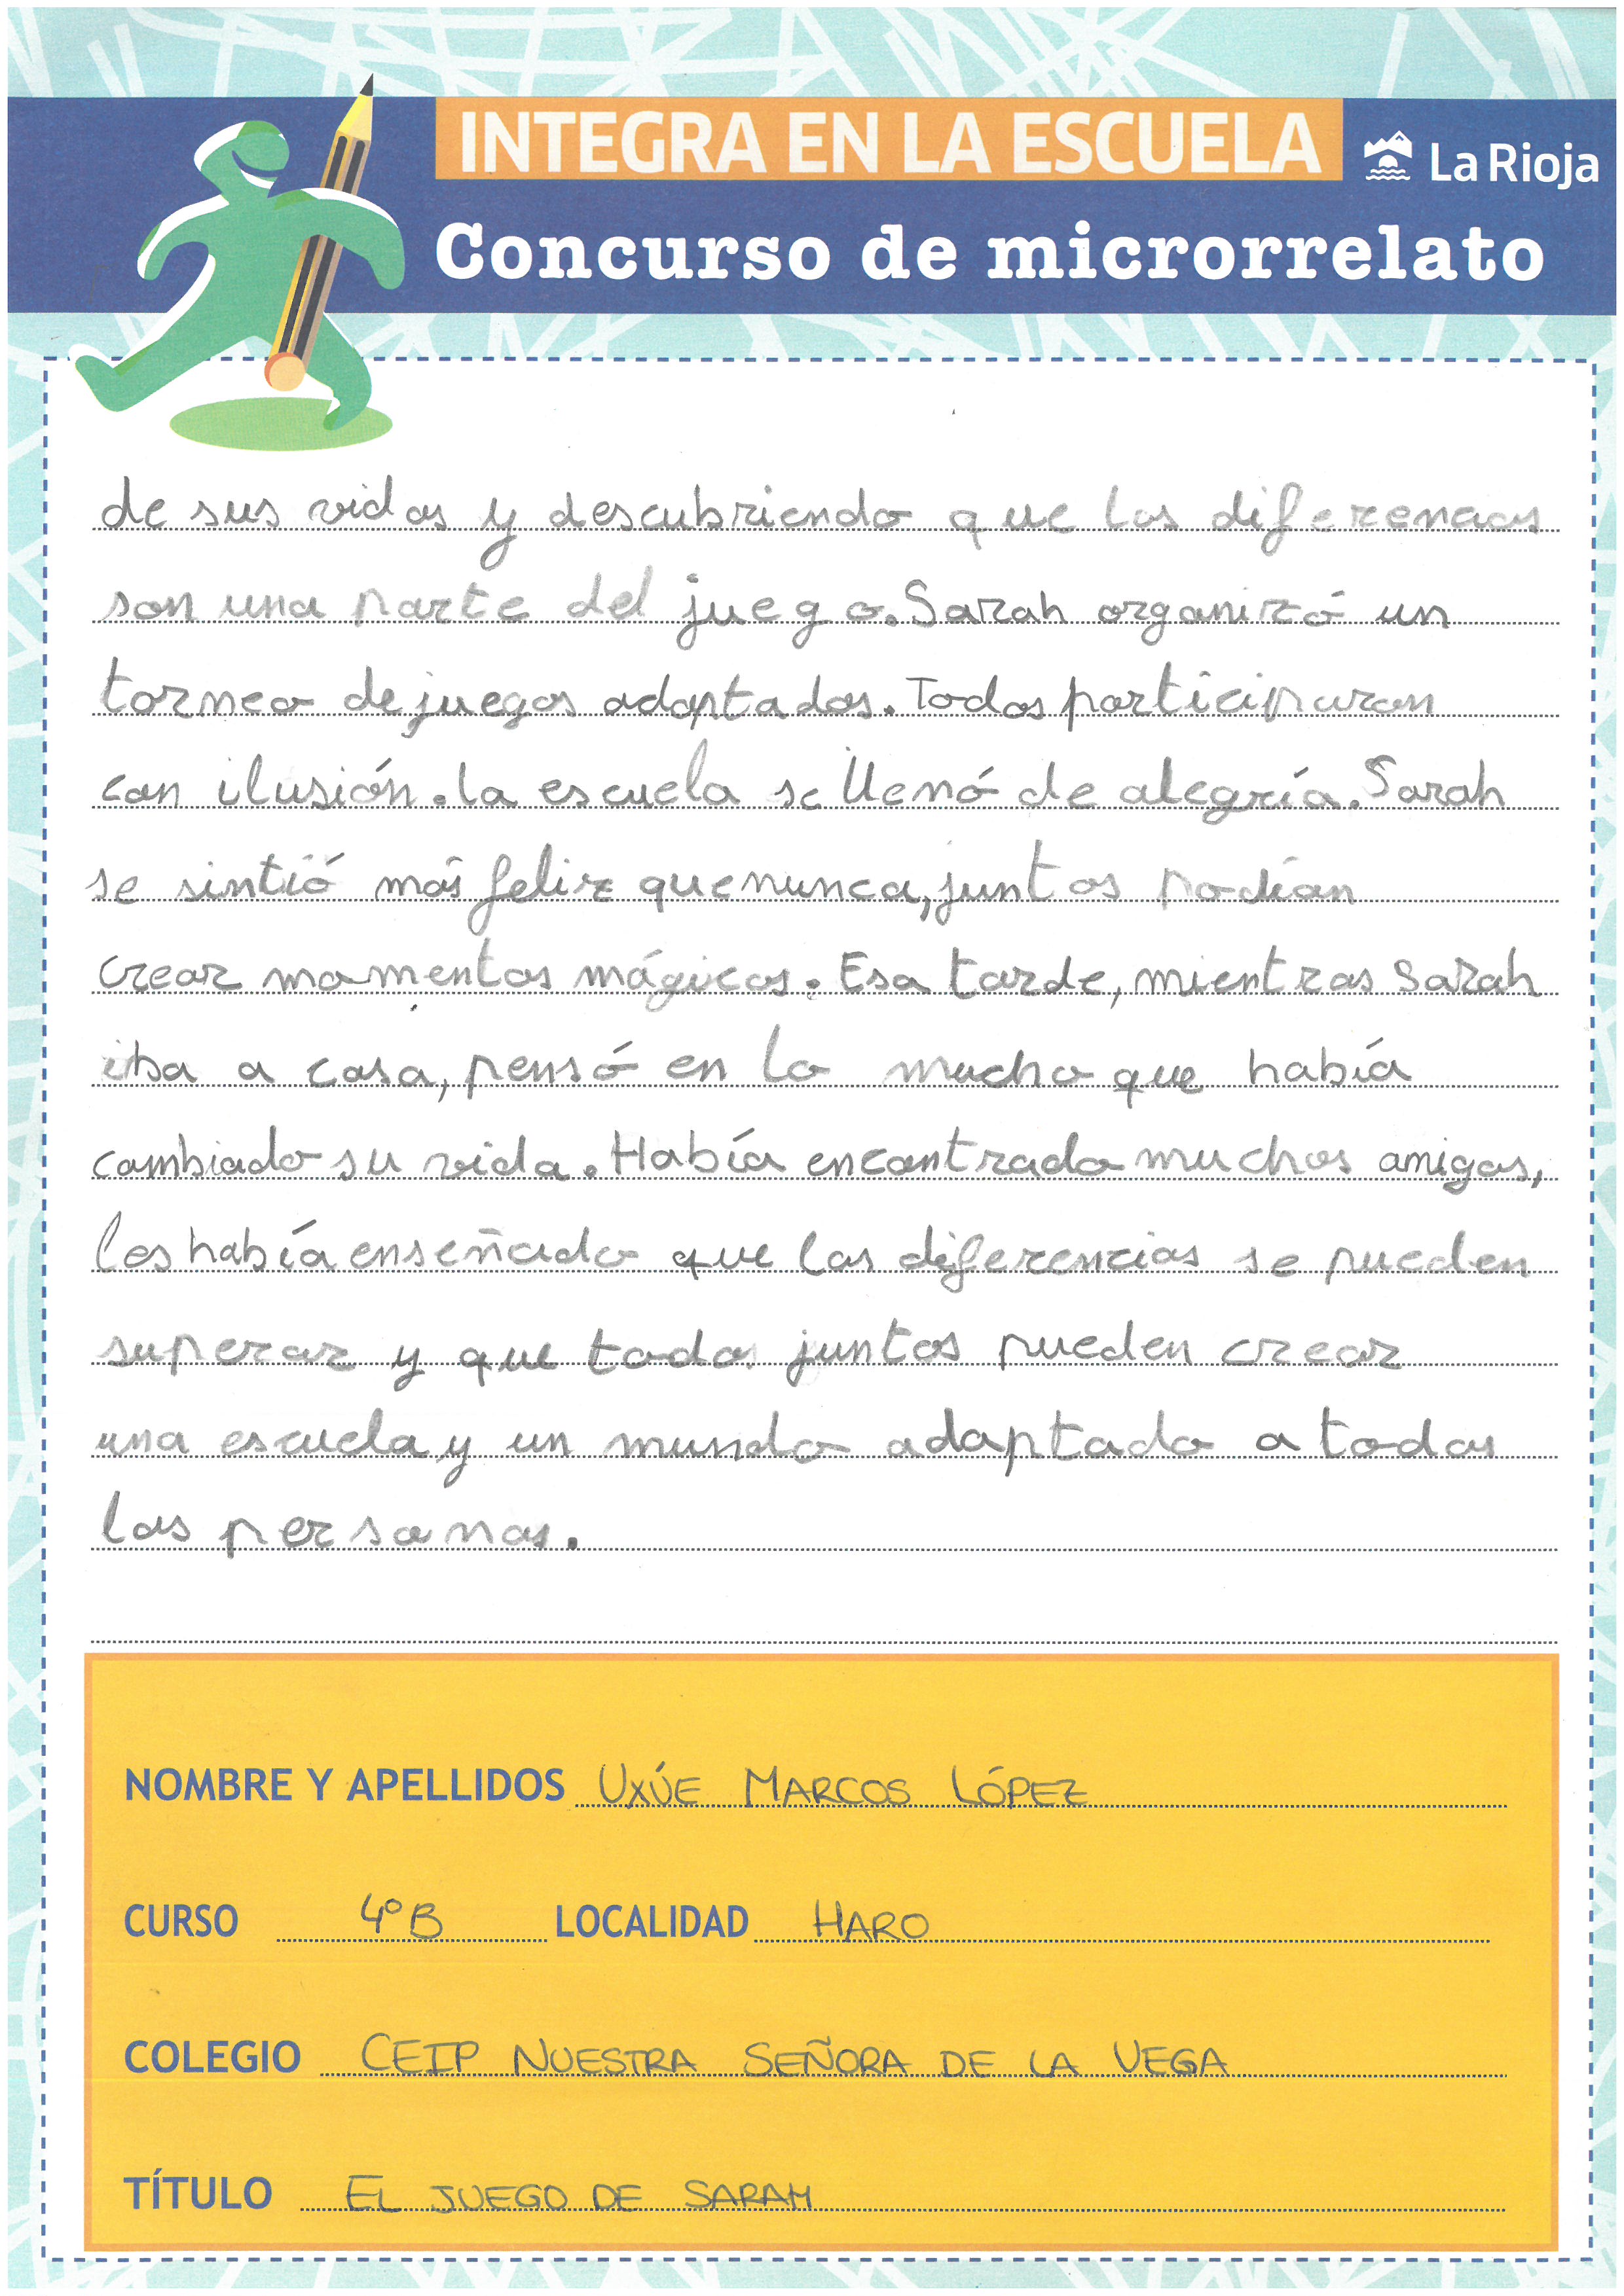 INTEGRA EN LA ESCUELA
La Rioja
Concurso de microrrelato
de sus vidas y descubriendo que las diferencias
son una parte del juego. Sarah organizó un
torneo de juegos adaptados. Todos participaron
con ilusión. la escuela se llenó de alegría. Sarah
se sintió más feliz que nunca, juntos podían
crear momentos mágicos. Esa tarde, mientras Sarah
iba a casa, pensó en lo mucho que había
cambiado su vida. Había encontrado muchos amigos,
les había enseñado que las diferencias se pueden
superar y que todos juntos pueden crear
una escuela y un mundo adaptado a todas
las personas.
NOMBRE Y APELLIDOS UXÚE MARCOS LÓPEZ
CURSO 4ºB LOCALIDAD HARO
COLEGIO CEIP NUESTRA SEÑORA DE LA VEGA
TÍTULO EL JUEGO DE SARAH